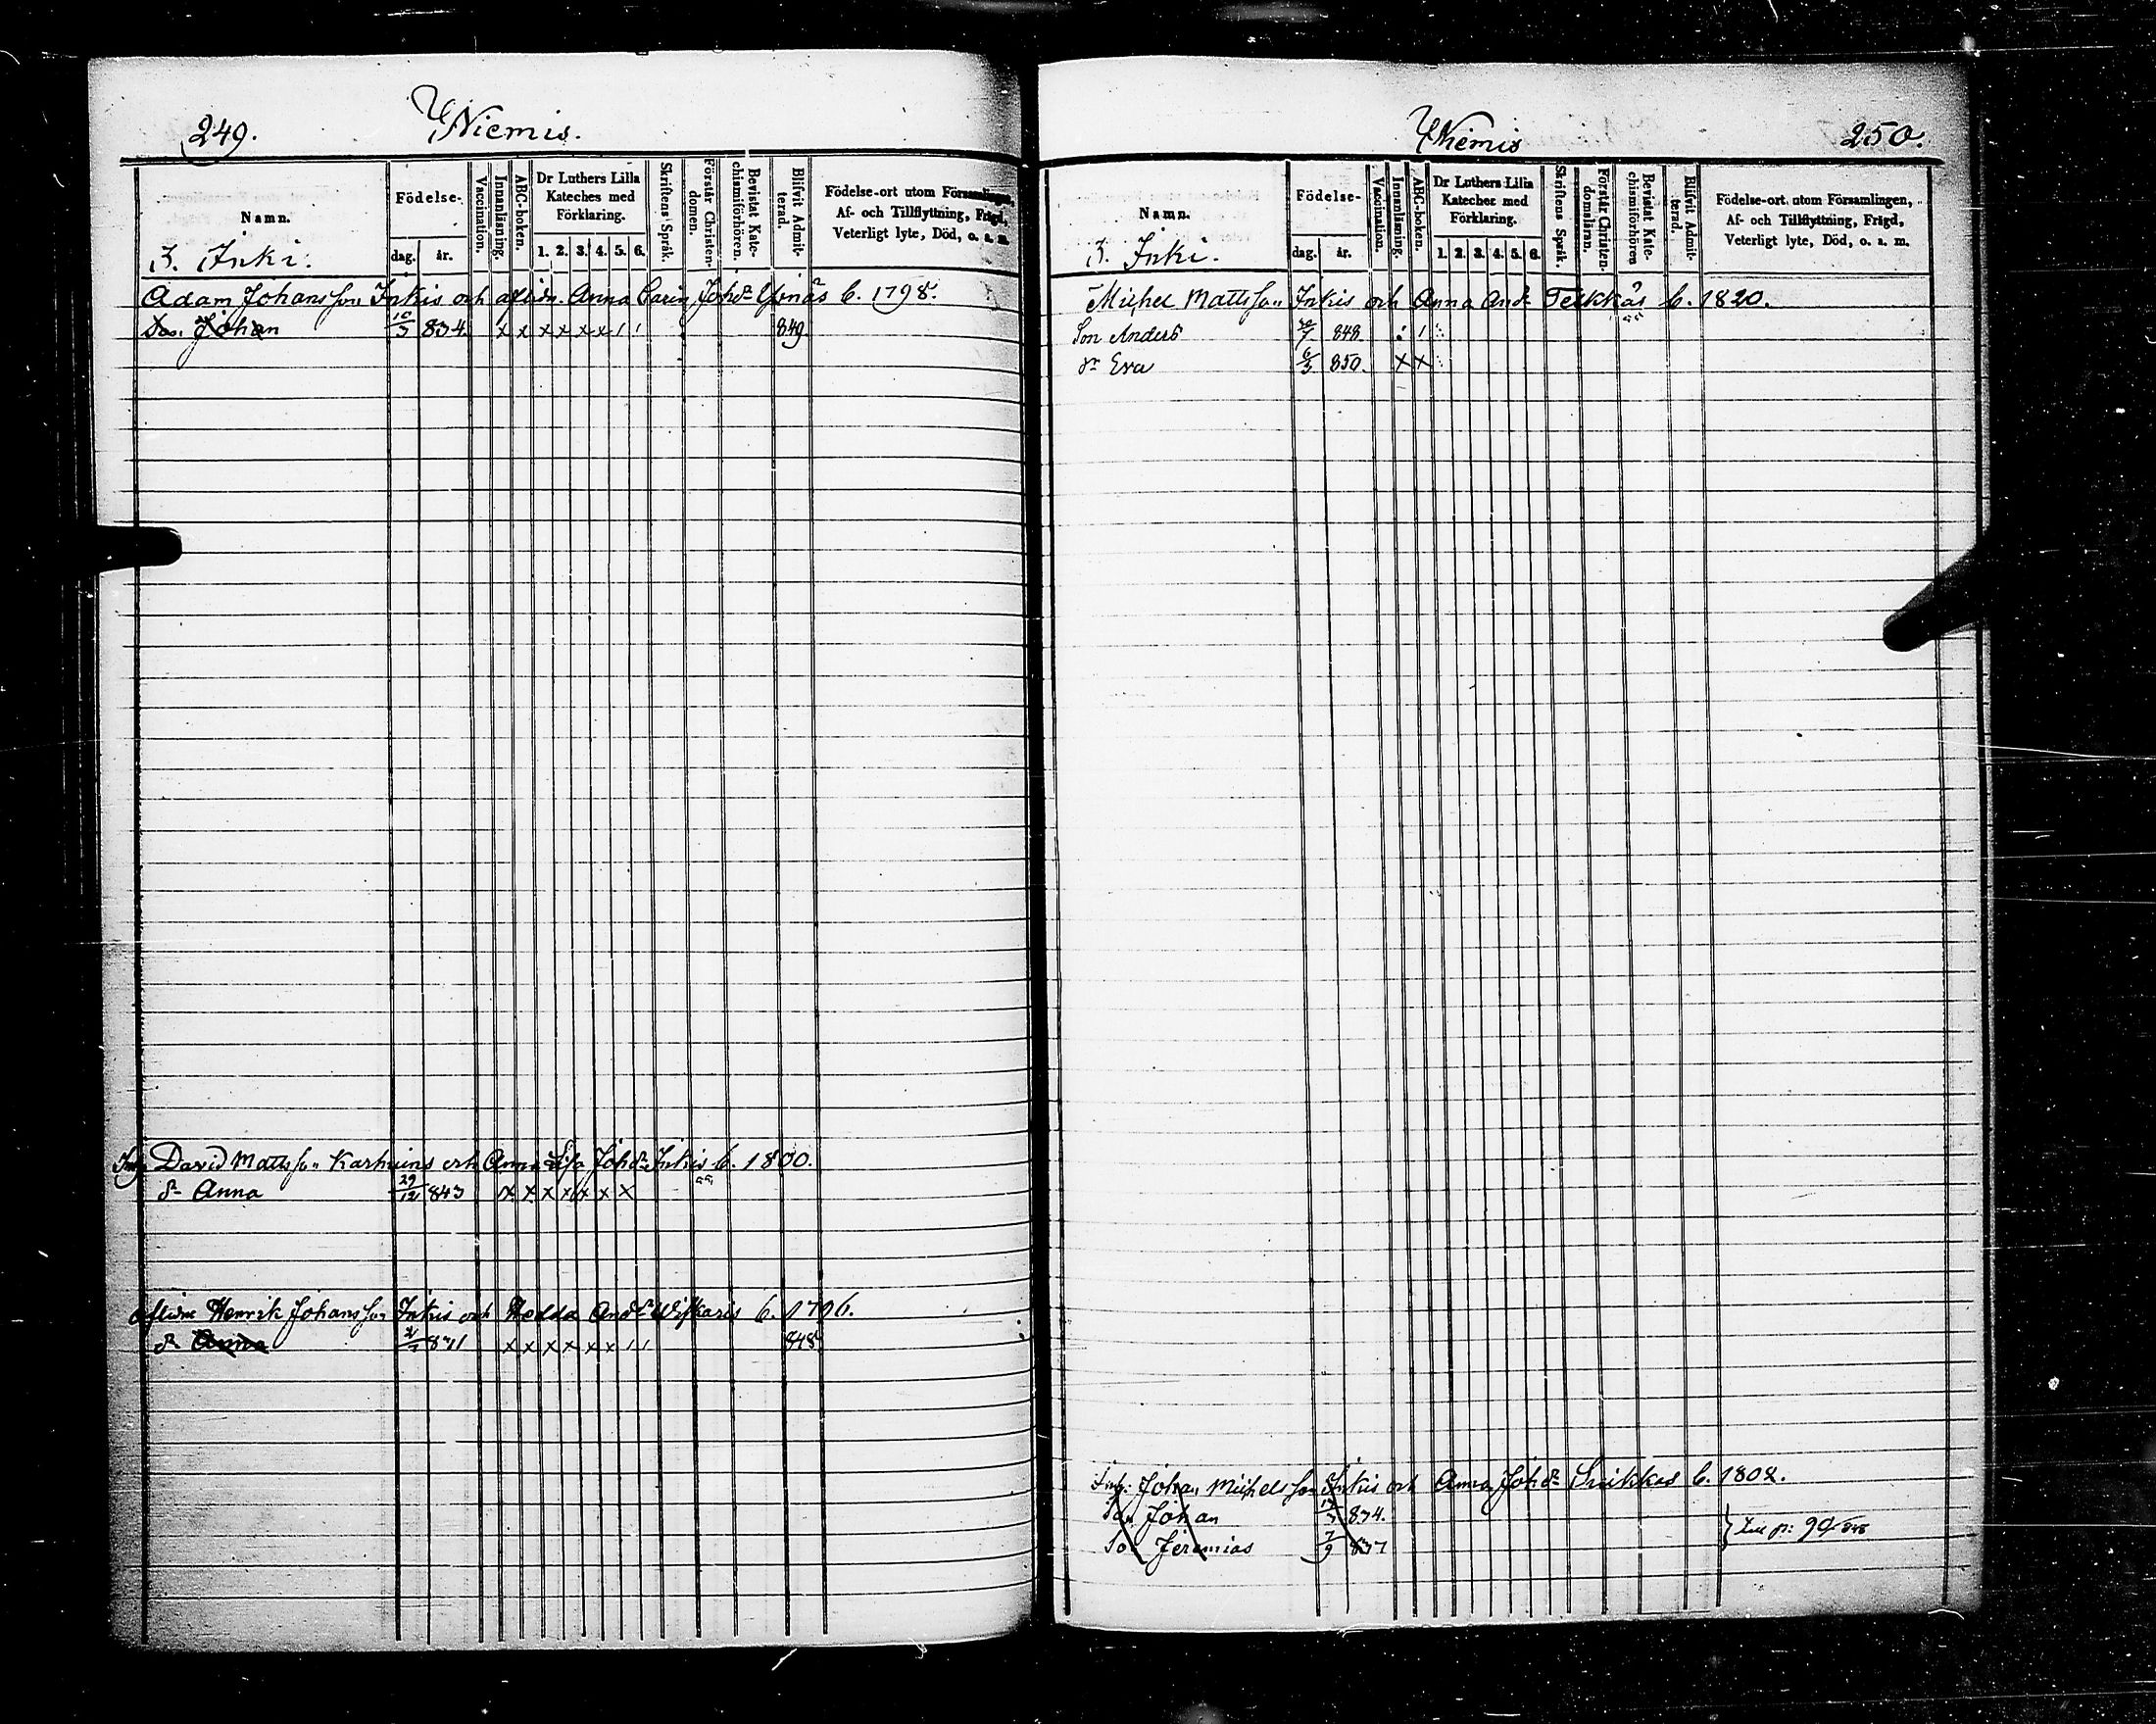 249.
YNiemis.
Namn.
Födelse-
dag.
år.
Vaccination.
Innanläsning.
ABC-boken.
Dr Luthers Lilla
Kateches med
Förklaring.
1. 2. 3. 4. 5. 6.
Skriftens Språk.
Förstår Christen-
domen.
Bevistat Kate-
chismiförhören.
Blifvit Admit-
terad.
Födelse-ort utom Församlingen,
Af- och Tillflyttning, Frägd,
Veterligt lyte, Död, o. a. m.
3. Inki.
Adam Johansson Inkis och aflidn. Anna Carin Johd:r Yrnäs b. 1798.
Son Johan 10/3 834. x x x x x x 1 1 849
Inh: David Mattsson Karhuins och Anna Lisa Johd:r Inkis b. 1800.
dr Anna 29/12 843 x x x x x x x
Aflidne Henrik Johansson Inkis och Hedda Andd:r b. 1796.
dr Anna 831 x x x x x x 1 1 848
YNiemis
250.
Namn.
Födelse-
dag.
år.
Vaccination.
Innanläsning.
ABC-boken.
Dr Luthers Lilla
Kateches med
Förklaring.
1. 2. 3. 4. 5. 6.
Skriftens Språk.
Förstår Christen-
domsläran.
Bevistat Kate-
chismiförhören
Blifvit Admit-
terad.
Födelse-ort utom Församlingen,
Af- och Tillflyttning, Frägd,
Veterligt lyte, Död, o. a. m.
3. Inki.
Michel Mattsson Inkis och Anna Andr Teikkas b. 1820.
Son Anders 848. : 1
dr Eva 6/3 850. x x
Inh: Johan Michelsson Inkis och Anna Johdr b. 1802.
Son Johan 834.
Son Jeremias 7/9 837
till p: 90/848